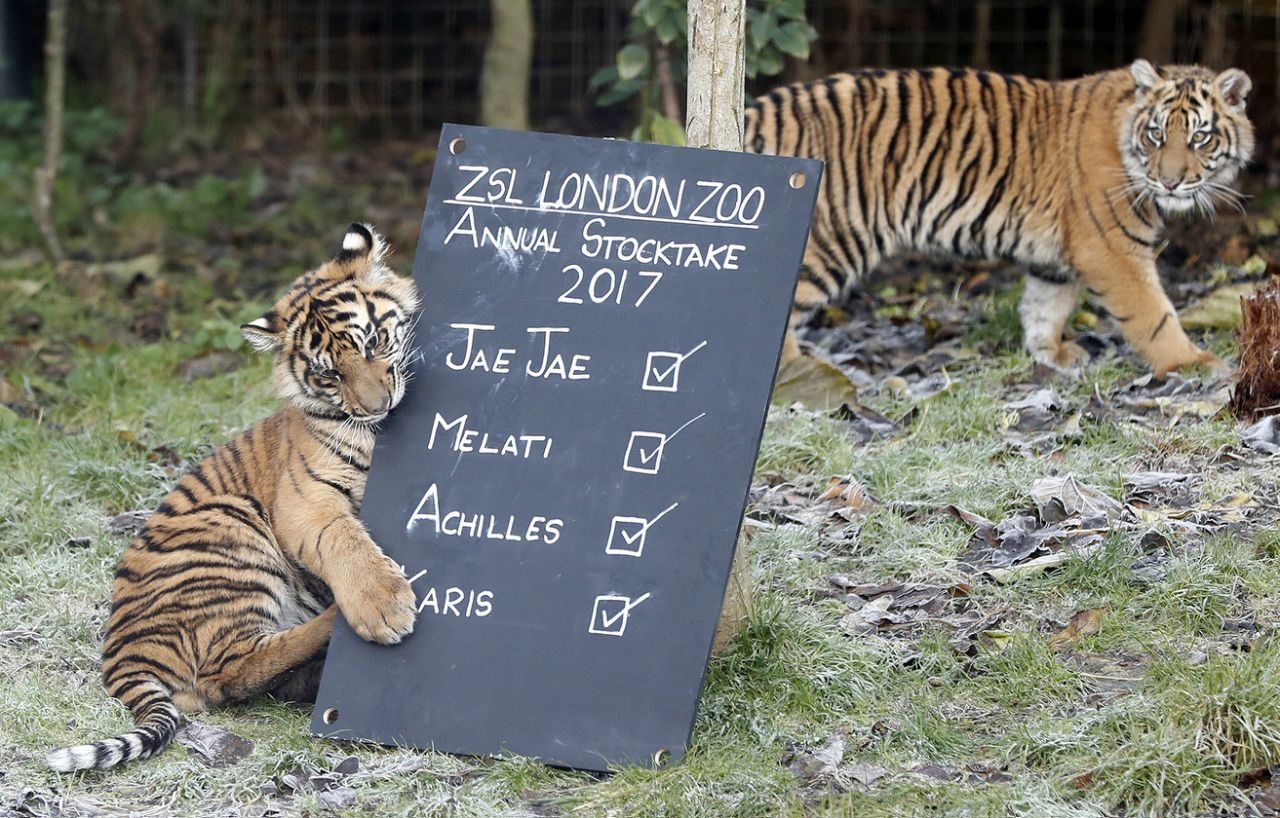 ZSL LONDON ZOO
ANNUAL STOCKTAKE
2017
JAE JAE
MELATI
ACHILLES
ARIS